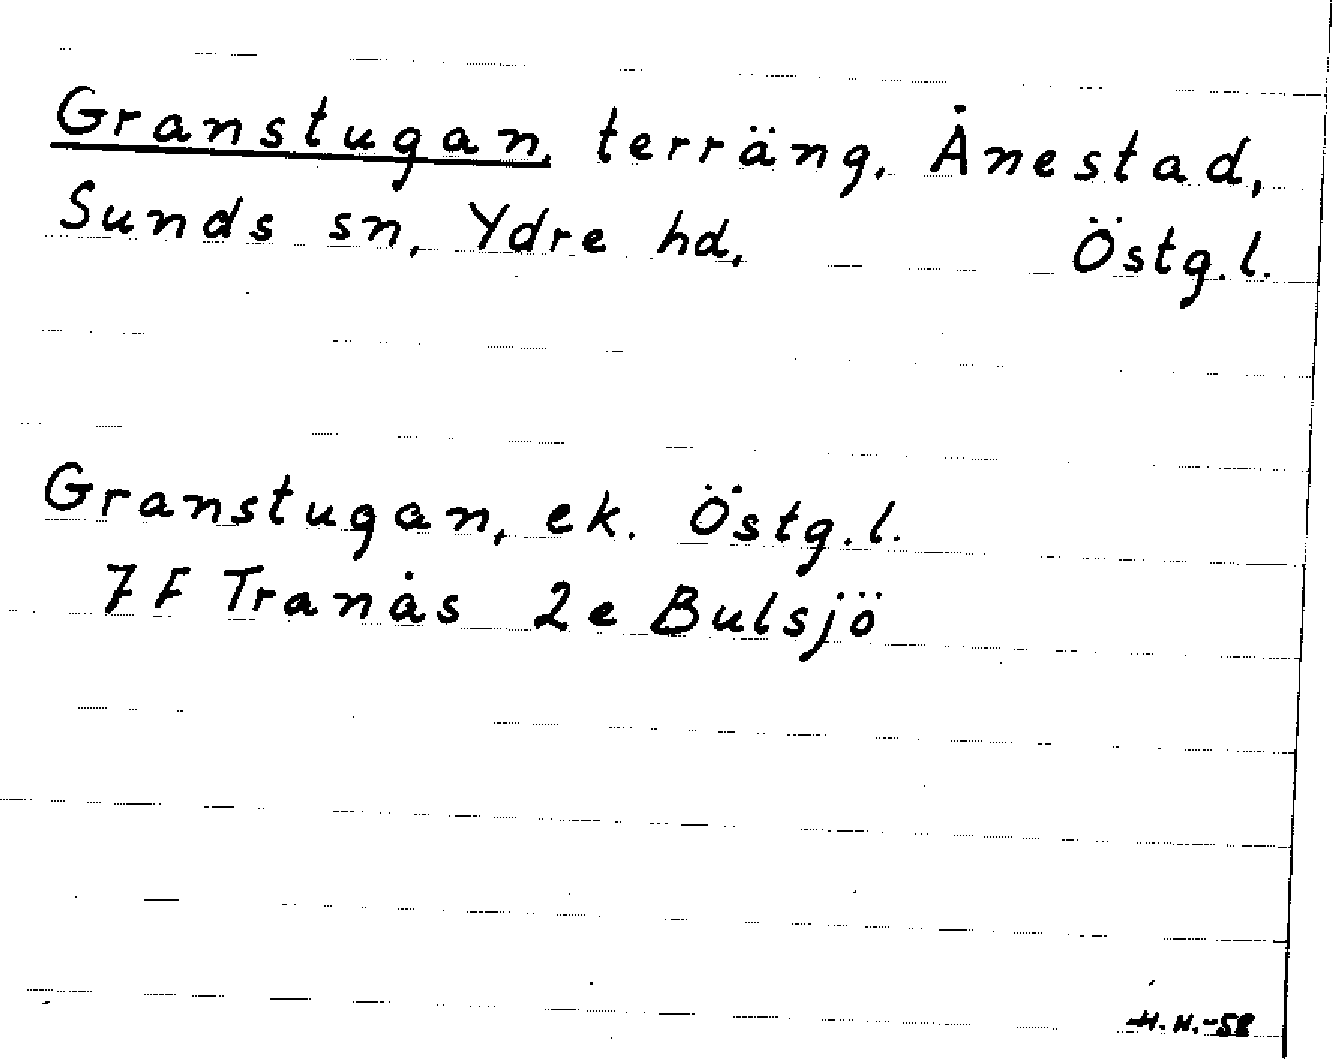 Granstugan, terräng, Ånestad,
Sunds sn, Ydre hd, Östg.l.
Granstugan, ek. Östg.l.
7F Tranås 2e Bulsjö
H.H.-58